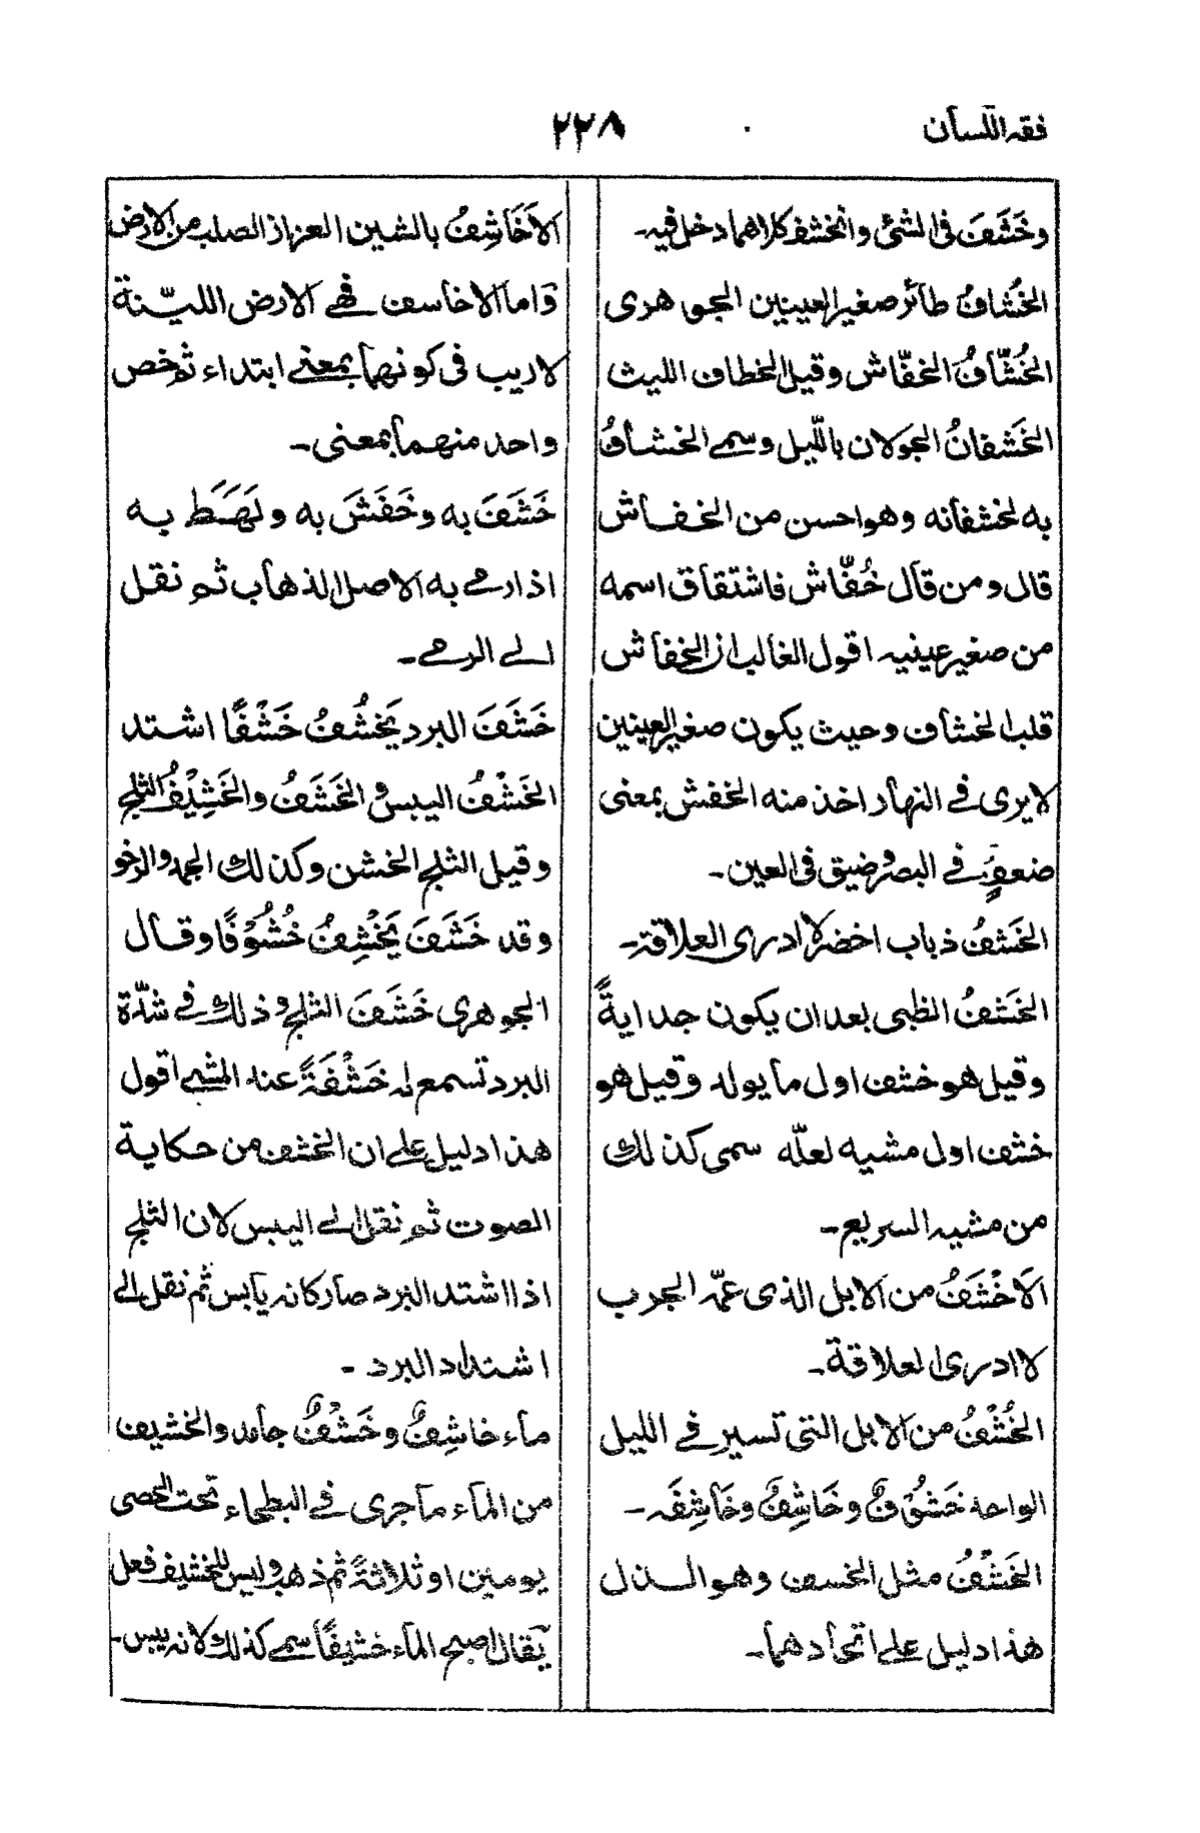 فقه اللسان
٢٢٨
وخَشَفَ فى الشئ وانخشف كلاهما دخل فيه ـ
الخُشَافُ طائر صغير العينين الجوهرى
الخُشَّافُ الخفّاش وقيل الخطاف الليث
الخَشَفانُ الجولان بالّليل وسمى الخشافُ
به لخشفانه وهو احسن من الخفاش
قال ومن قال خُفّاش فاشتقاق اسمه
من صغر عينيه اقول الغالب ان الخفاش
قلب الخشاف وحيث يكون صغير العينين
لا يرى فى النهار اخذ منه الخفش بمعنى
ضعفٍ فى البصر وضيق فى العين ـ
الخَشفُ ذباب اخضر لا ادرى العلاقة ـ
الخَشفُ الظبى بعد ان يكون جدايةً
وقيل هو خشف اول ما يولد وقيل هو
خشف اول مشيه لعلّه سمى كذلك
من مشيه السريع ـ
الاَخْشَفُ من الابل الذى عمّه الجرب
لا ادرى العلاقة ـ
الخُشْفُ من الابل التى تسير فى الليل
الواحد خَشُوْفٌ وخَاشِفٌ وخَاشِفَه ـ
الخَشْفُ مثل الخسف وهو الذل
هذا دليل على اتحادهما ـ
الاَخَاشِفُ بالشين العزاز الصلب من الارض
وَاما الاخاسف فهى الارض الليّنة
لا ريب فى كونهما بمعنى ابتداء ثم خص
واحد منهما بمعنى ـ
خَشَفَ به وخَفَشَ به ولَهَطَ به
اذا رمى به الاصل الذهاب ثم نقل
الى الرمى ـ
خَشَفَ البرد يَخشُفُ خَشْفًا اشتد
الخَشْفُ اليبس والخَشَفُ والخَشِيْفُ الثلج
وقيل الثلج الخشن وكذلك الجمد والرخو
وقد خَشَفَ يَخْشِفُ خُشُوْفًا وقال
الجوهرى خَشَفَ الثلج وذلك فى شدّة
البرد تسمع له خَشْفَةً عند المشى اقول
هذا دليل على ان الخشف من حكاية
الصوت ثم نقل الى اليبس لان الثلج
اذا اشتد البرد صار كانه يابس ثم نقل الى
اشتداد البرد ـ
ماء خاشِفٌ وخَشْفٌ جامد والخشيف
من الماء ما جرى فى البطحاء تحت الحصى
يومين او ثلاثةً ثم ذهب وليس للخشيف فعل
يقال اصبح الماء خشيفًا سمى كذلك لانه يبس ـ